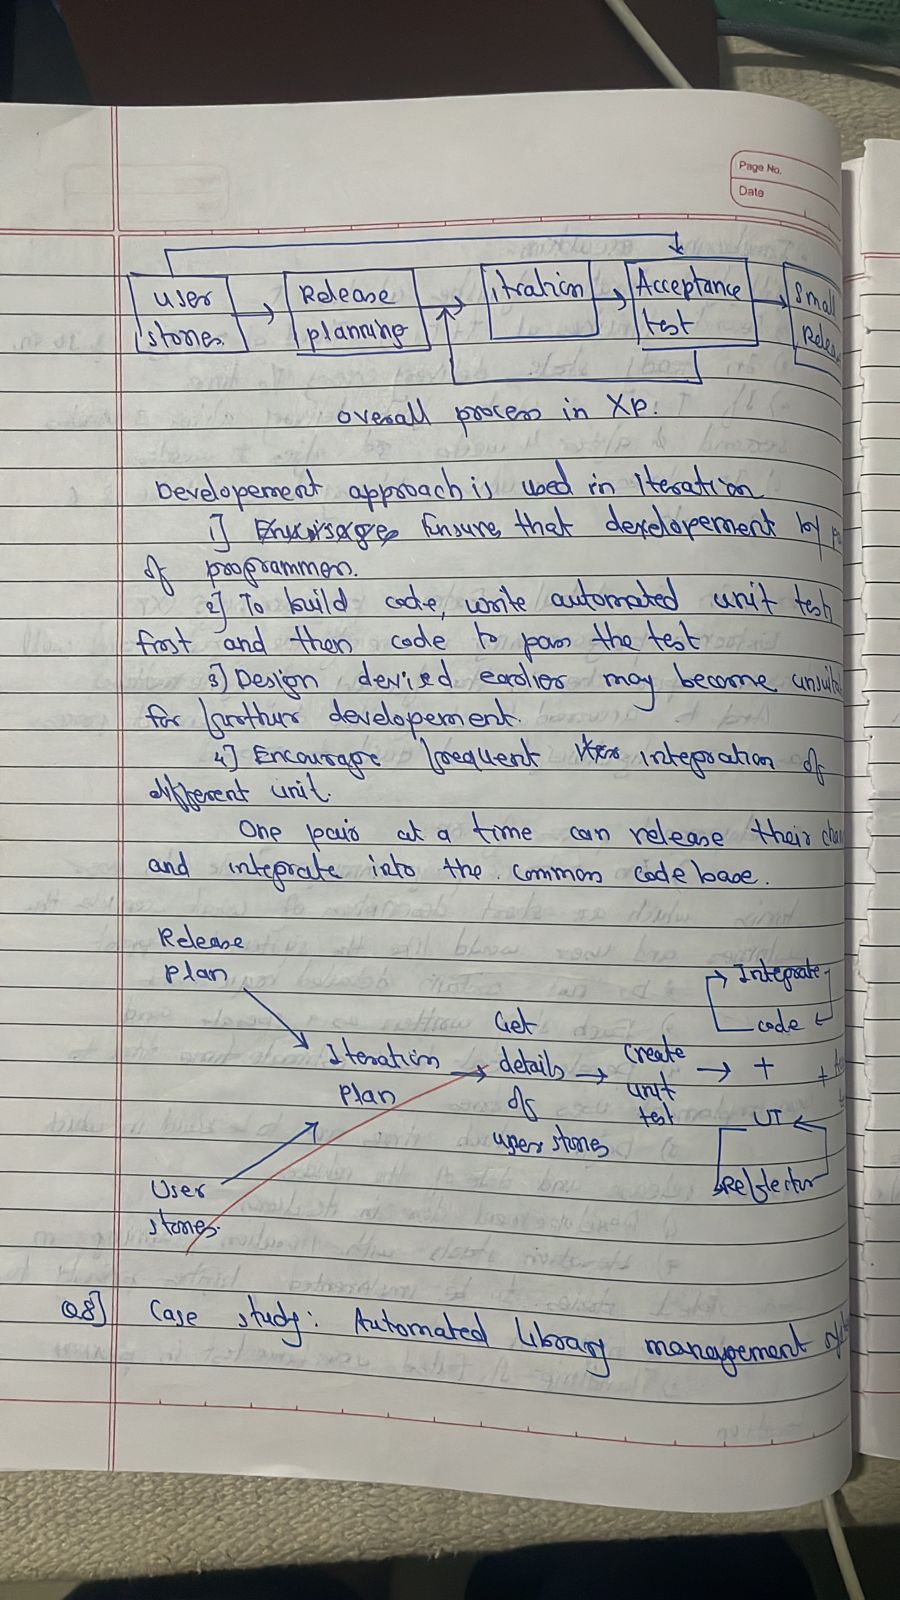 Page No.
Date
User stories
Release planning
itration
Acceptance test
Small Releas
overall process in XP.
Developement approach is used in iteration
1] Ensure that developement by
of programmers.
2] To build code, write automated unit test
first and then code to pass the test
3) Design devised earlier may become unsuita
for further developement.
4] Encourage frequent integration of
different unit.
One pair at a time can release their cha
and integrate into the common code base.
Release
plan
Iteration
plan
User
stories.
Get
details
of
user stories
create
unit
test
Integrate
code
+
UT
Refector
+
Q8] Case study: Automated Library management